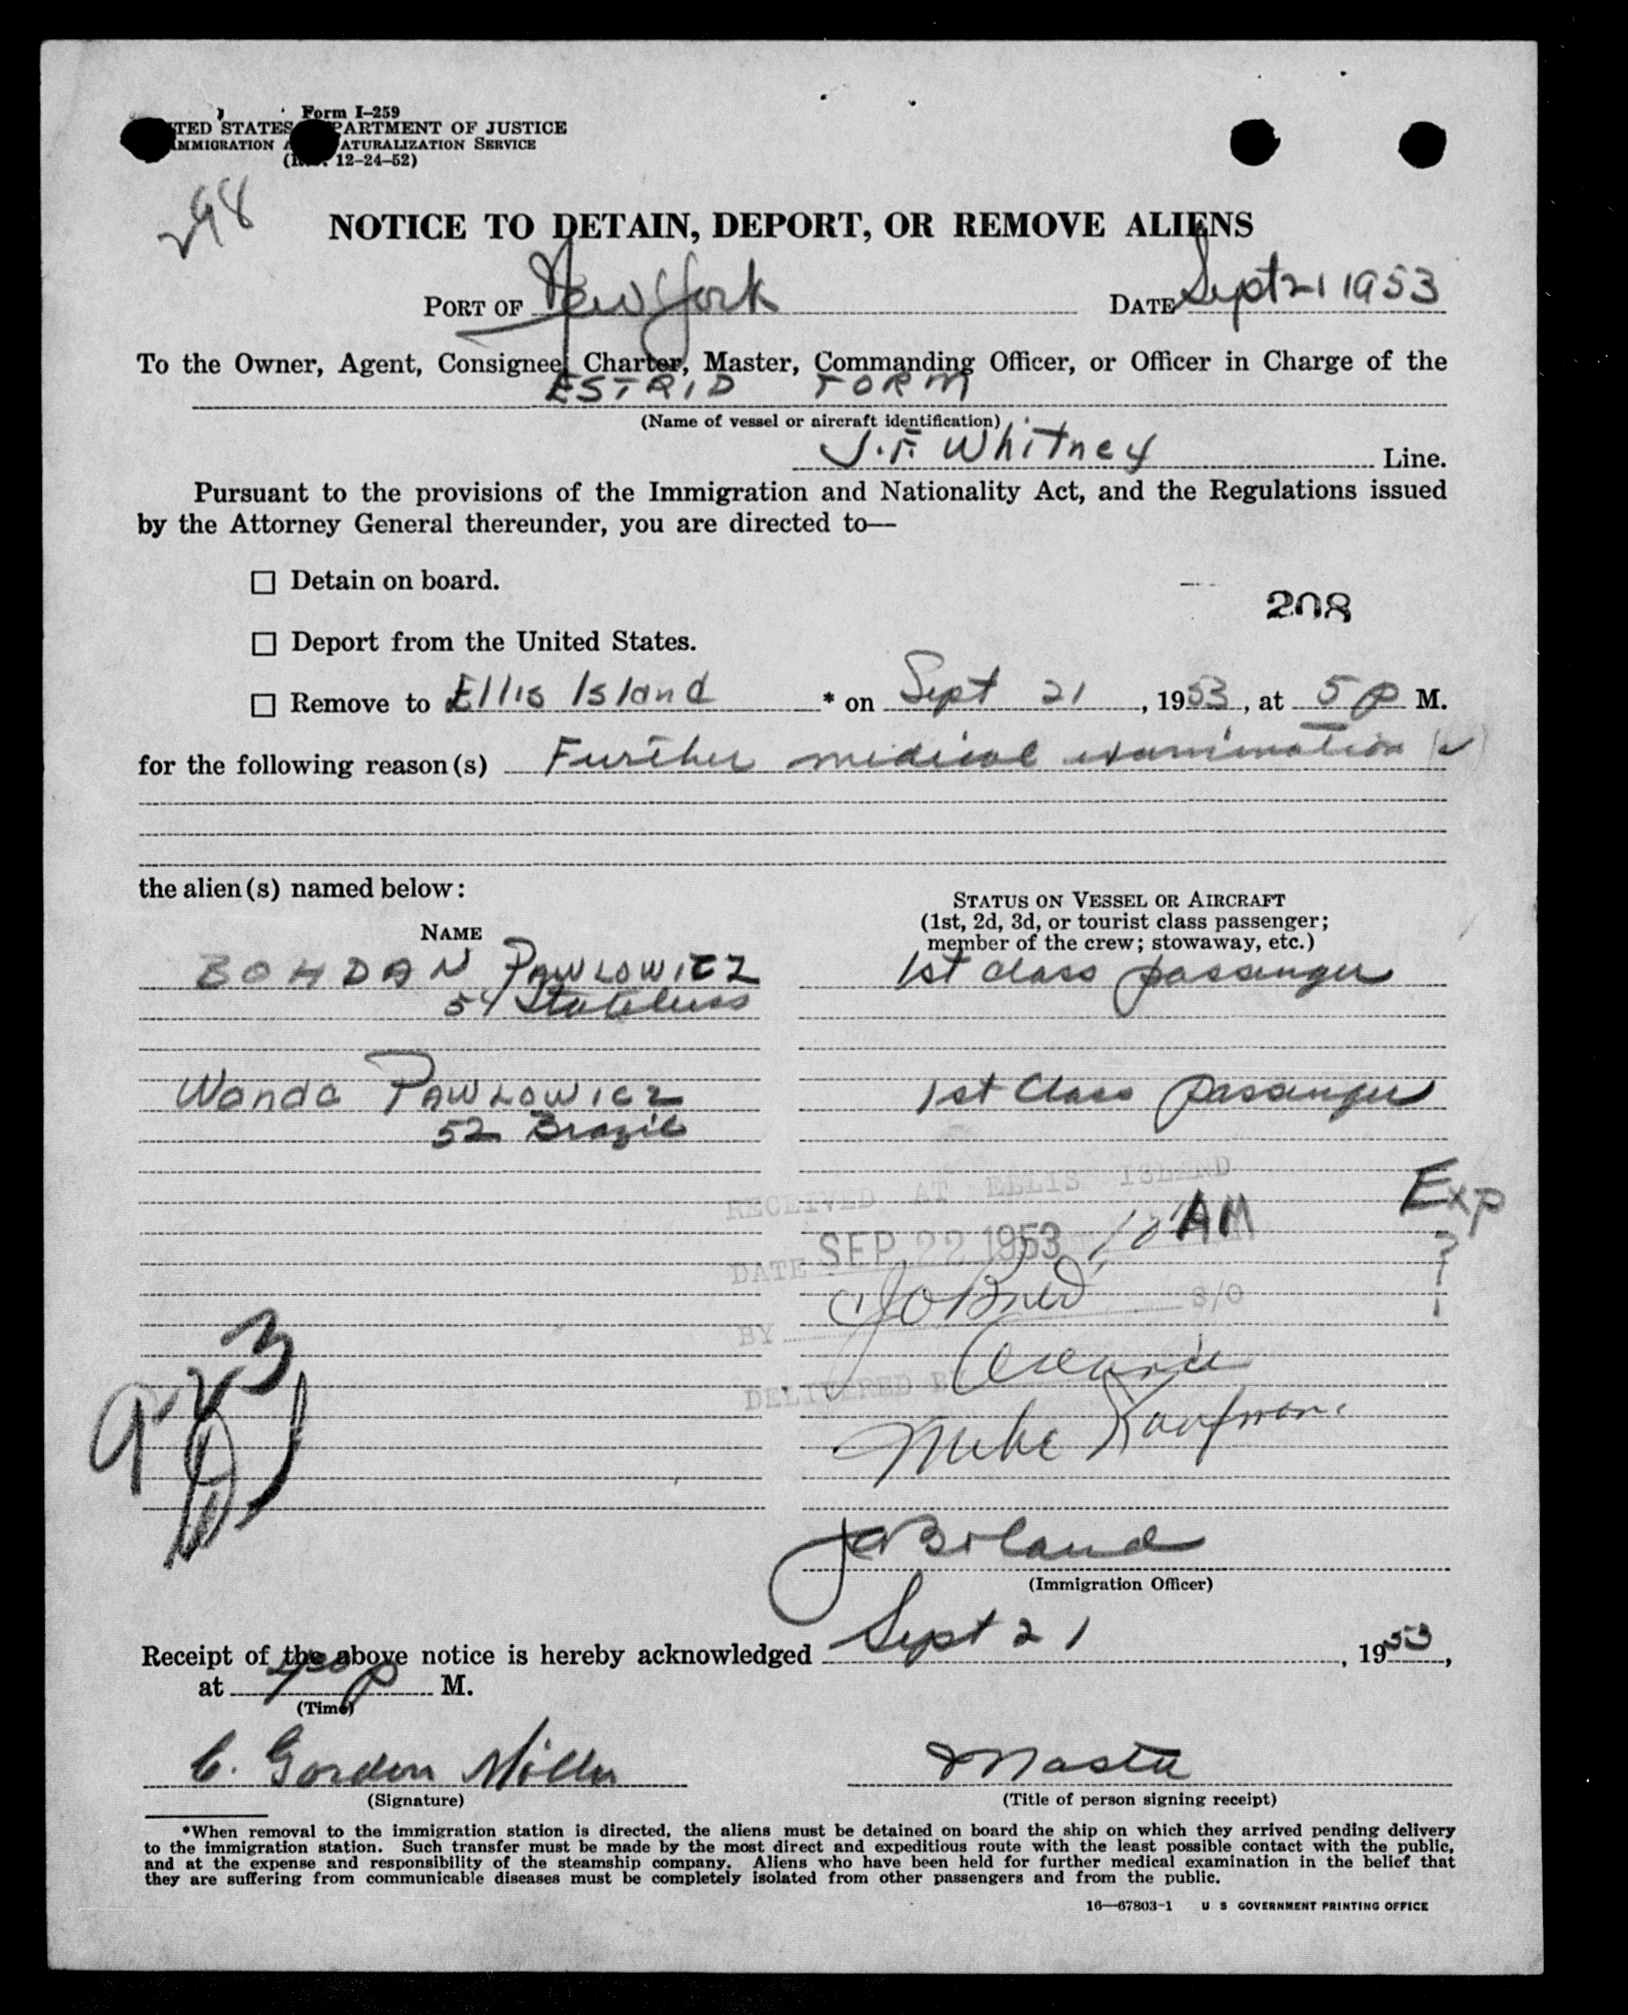 Form I-259
TED STATES PARTMENT OF JUSTICE
IMMIGRATION ATURALIZATION SERVICE
12-24-52)
298
NOTICE TO DETAIN, DEPORT, OR REMOVE ALIENS
PORT OF New York DATE Sept 21 1953
To the Owner, Agent, Consignee, Charter, Master, Commanding Officer, or Officer in Charge of the
ESTRID TORM
(Name of vessel or aircraft identification)
J.F. Whitney Line.
Pursuant to the provisions of the Immigration and Nationality Act, and the Regulations issued
by the Attorney General thereunder, you are directed to—
☐ Detain on board.
208
☐ Deport from the United States.
☐ Remove to Ellis Island * on Sept 21, 1953, at 5 P M.
for the following reason(s) Further medical examination
the alien(s) named below:
NAME
STATUS ON VESSEL OR AIRCRAFT
(1st, 2d, 3d, or tourist class passenger;
member of the crew; stowaway, etc.)
BOHDAN PAWLOWICZ 1st class passenger
54 Stateless
Wanda PAWLOWICZ 1st Class passenger
52 Brazil
RECEIVED AT ELLIS ISLAND
Exp
DATE SEP 22 1953 AM
?
BY S/O
DELIVERED B
Mike Kaufman
9-23
(Immigration Officer)
Receipt of the above notice is hereby acknowledged Sept 21, 1953,
at 430 P M.
(Time)
C. Gordon Miller Master
(Signature) (Title of person signing receipt)
*When removal to the immigration station is directed, the aliens must be detained on board the ship on which they arrived pending delivery
to the immigration station. Such transfer must be made by the most direct and expeditious route with the least possible contact with the public,
and at the expense and responsibility of the steamship company. Aliens who have been held for further medical examination in the belief that
they are suffering from communicable diseases must be completely isolated from other passengers and from the public.
16—67803-1 U S GOVERNMENT PRINTING OFFICE